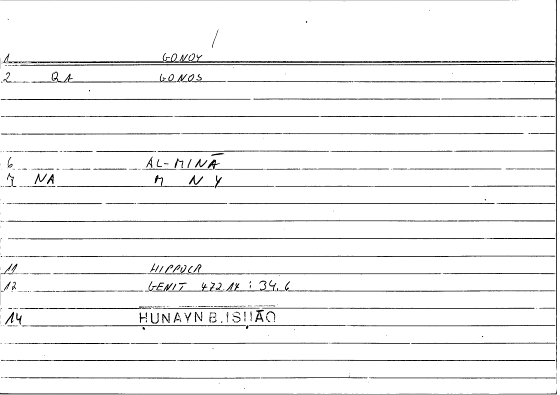 1 GONOY
2 QA GONOS
6 AL-MINĀ
7 NA M N Y
11 HIPPOCR
12 GENIT 472 14 : 34.6
14 ḤUNAYN B. ISḤĀQ